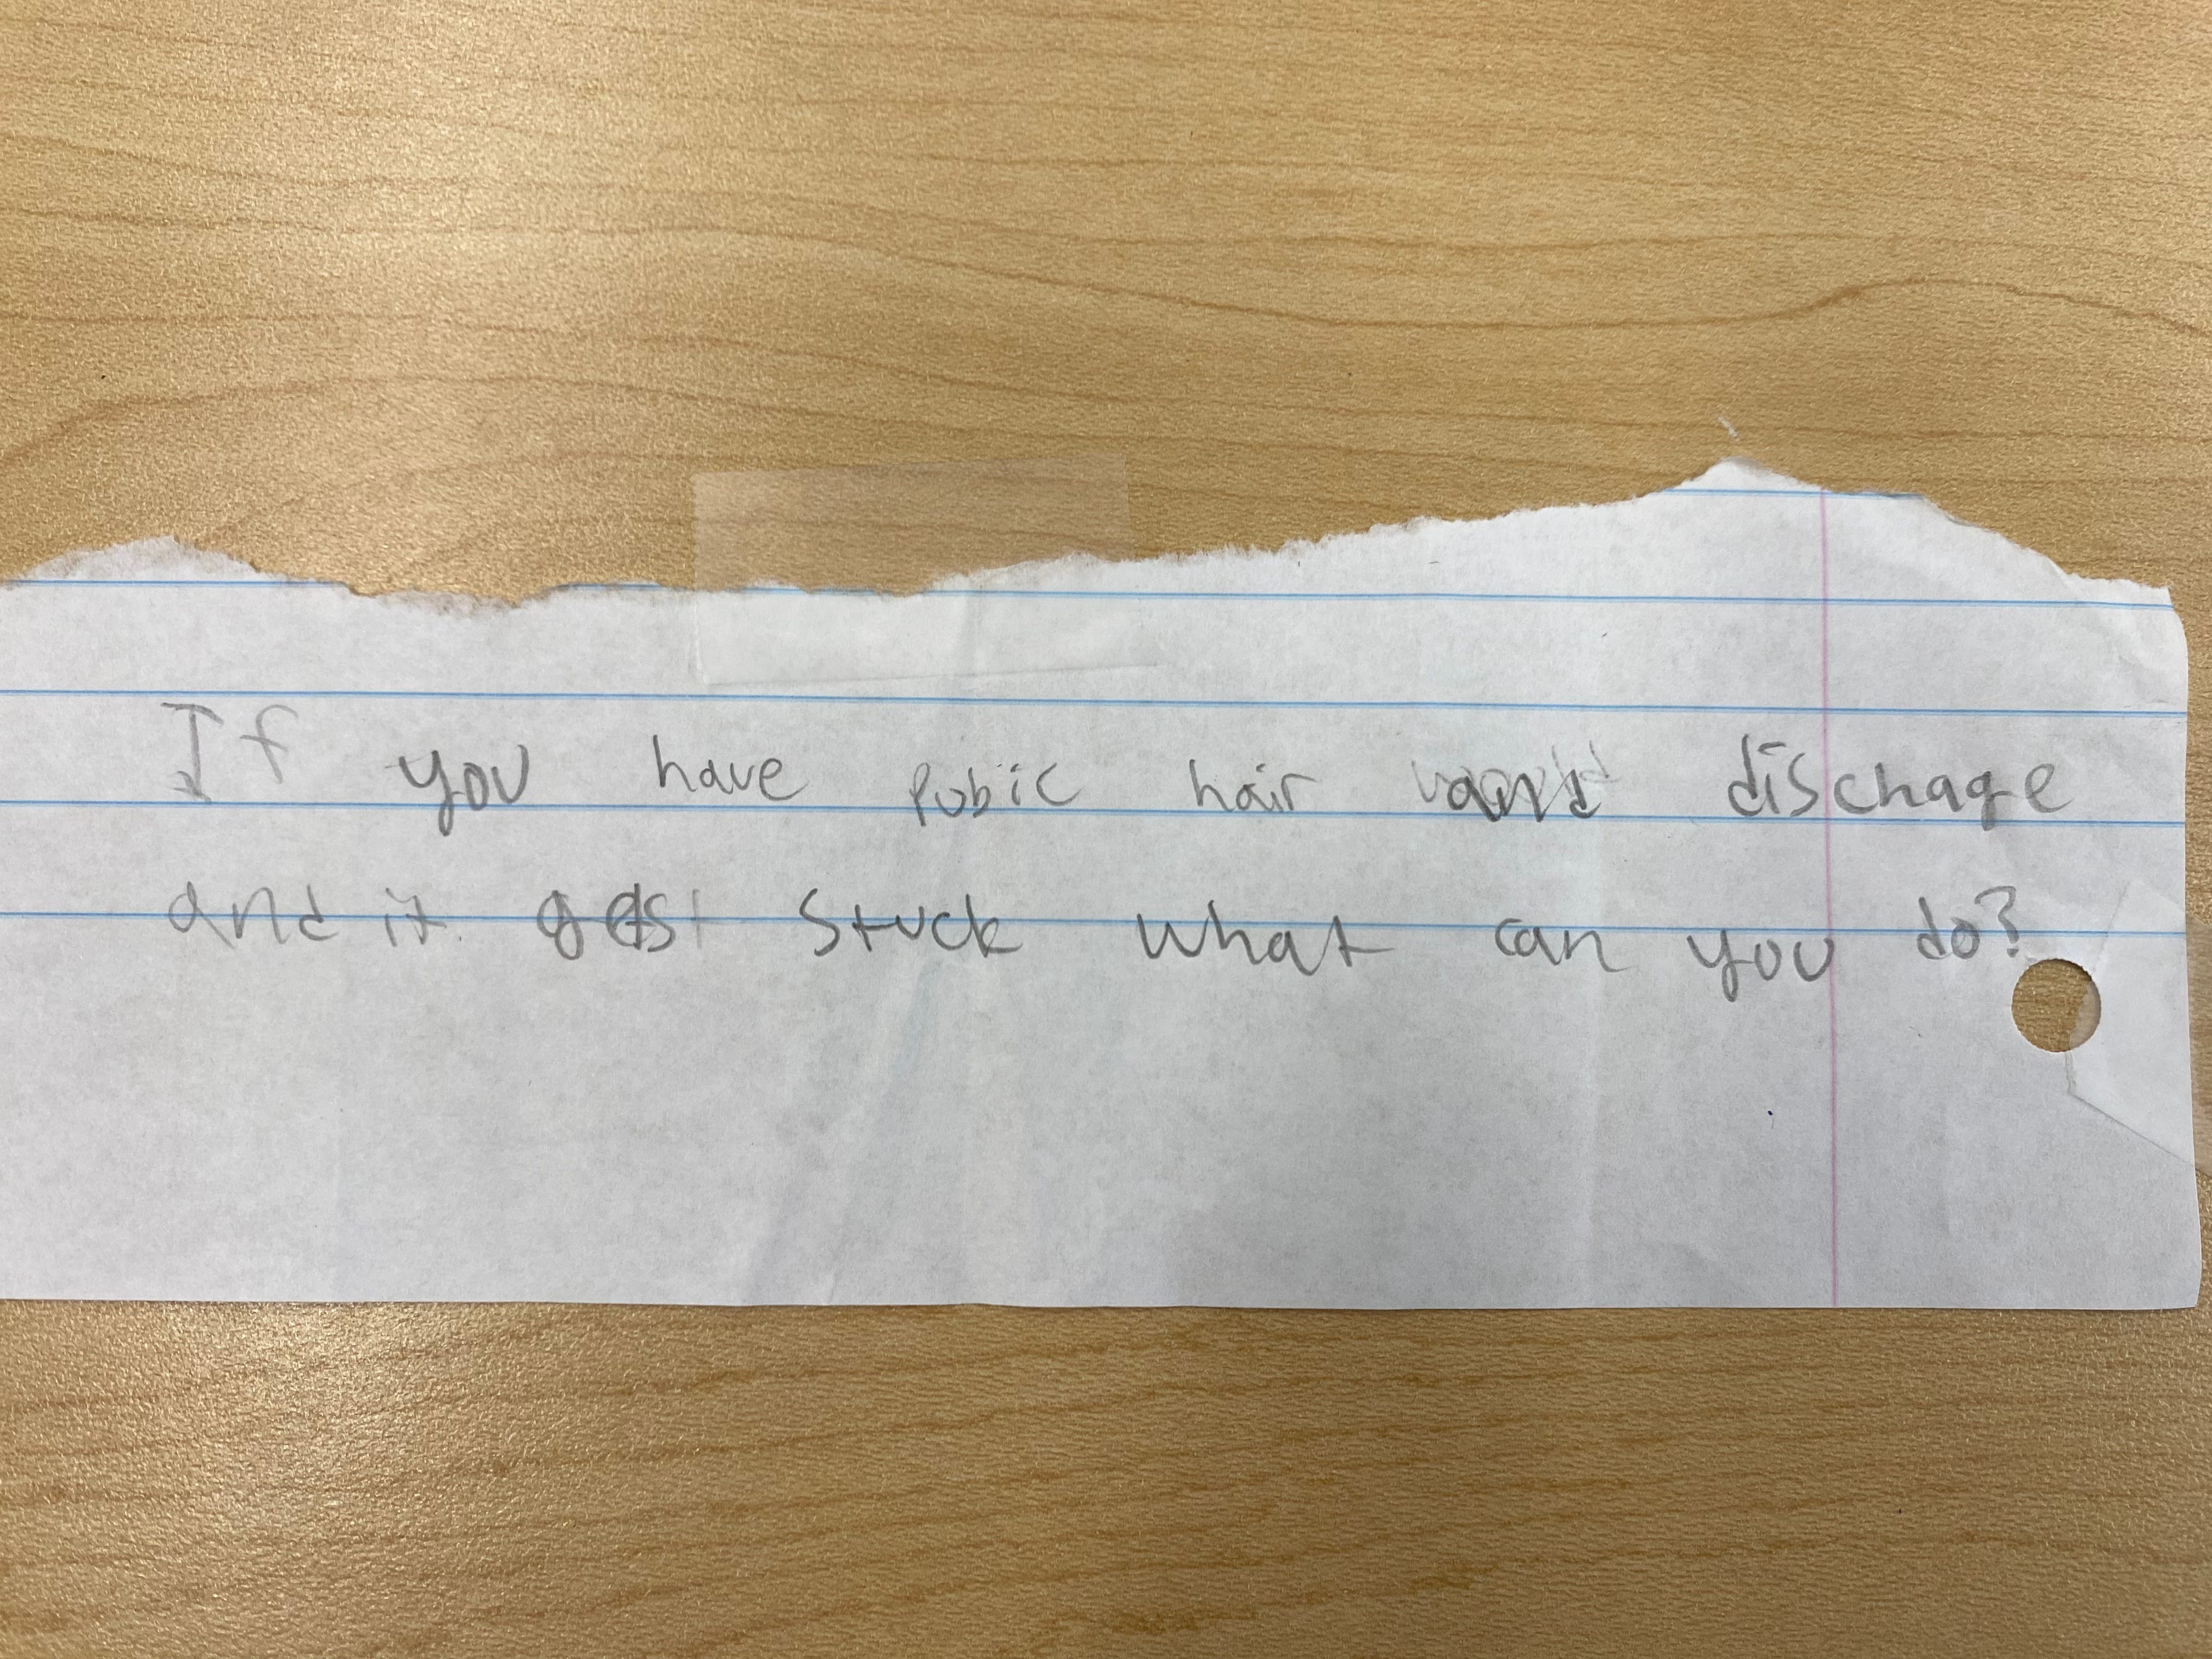 If you have pubic hair and dischage
and it gets stuck what can you do?